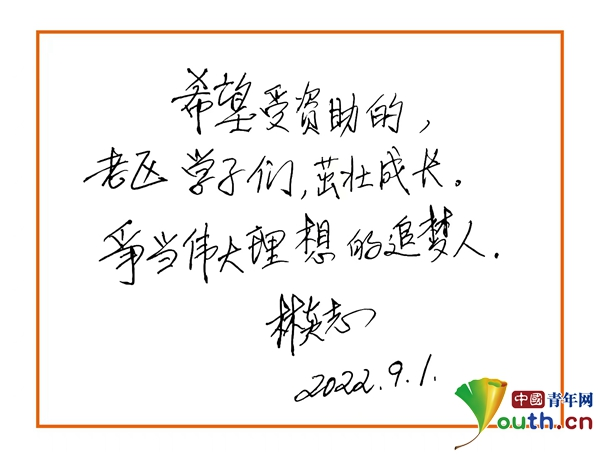 希望受资助的，
老区学子们，茁壮成长。
争当伟大理想的追梦人.
林英志
2022.9.1.
中國青年网
Youth.cn